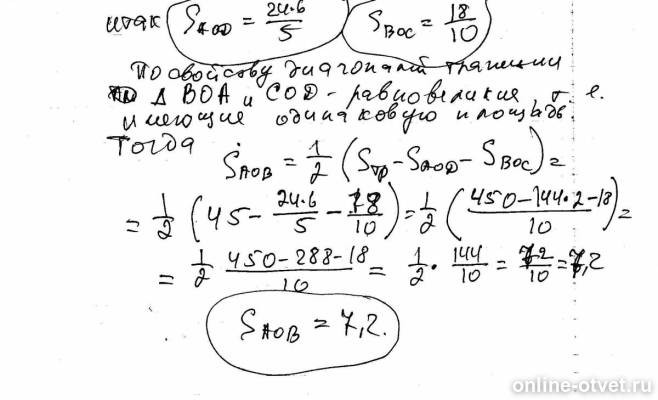 итак S_AOD = 24·6/5 S_BOC = 18/10
По свойству диагоналей трапеции
Δ BOA и COD - равновеликие, т.е.
имеющие одинаковую площадь.
Тогда
S_AOB = 1/2 (S_тр - S_AOD - S_BOC) =
= 1/2 (45 - 24·6/5 - 18/10) = 1/2 (450 - 144·2 - 18)/10 =
= 1/2 (450 - 288 - 18)/10 = 1/2 · 144/10 = 72/10 = 7,2
S_AOB = 7,2.
online-otvet.ru